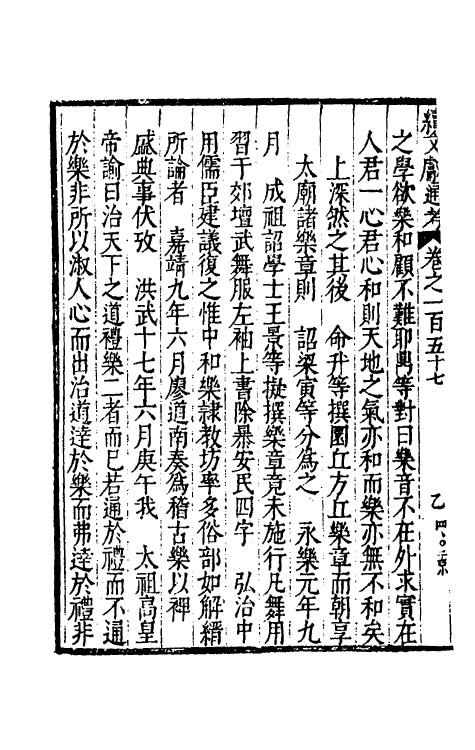 續文獻通考 卷之一百五十七
之學欲樂和顧不難耶㒷等對曰樂音不在外求實在
人君一心君心和則天地之氣亦和而樂亦無不和矣
上深然之其後 命升等撰圜丘方丘樂章而朝享
太廟諸樂章則 詔梁寅等分為之 永樂元年九
月 成祖詔學士王景等擬撰樂章竟未施行凡舞用
習于郊壇武舞服左袖上書除暴安民四字 弘治中
用儒臣建議復之惟中和樂隷教坊率多俗部如解縉
所論者 嘉靖九年六月廖道南奏為稽古樂以裨
盛典事伏攷 洪武十七年六月庚午我 太祖高皇
帝諭曰治天下之道禮樂二者而已若通於禮而不通
於樂非所以淑人心而出治道達於樂而弗達於禮非